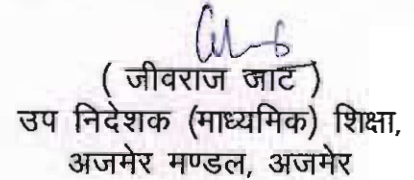 ( जीवराज जाट )
उप निदेशक (माध्यमिक) शिक्षा,
अजमेर मण्डल, अजमेर